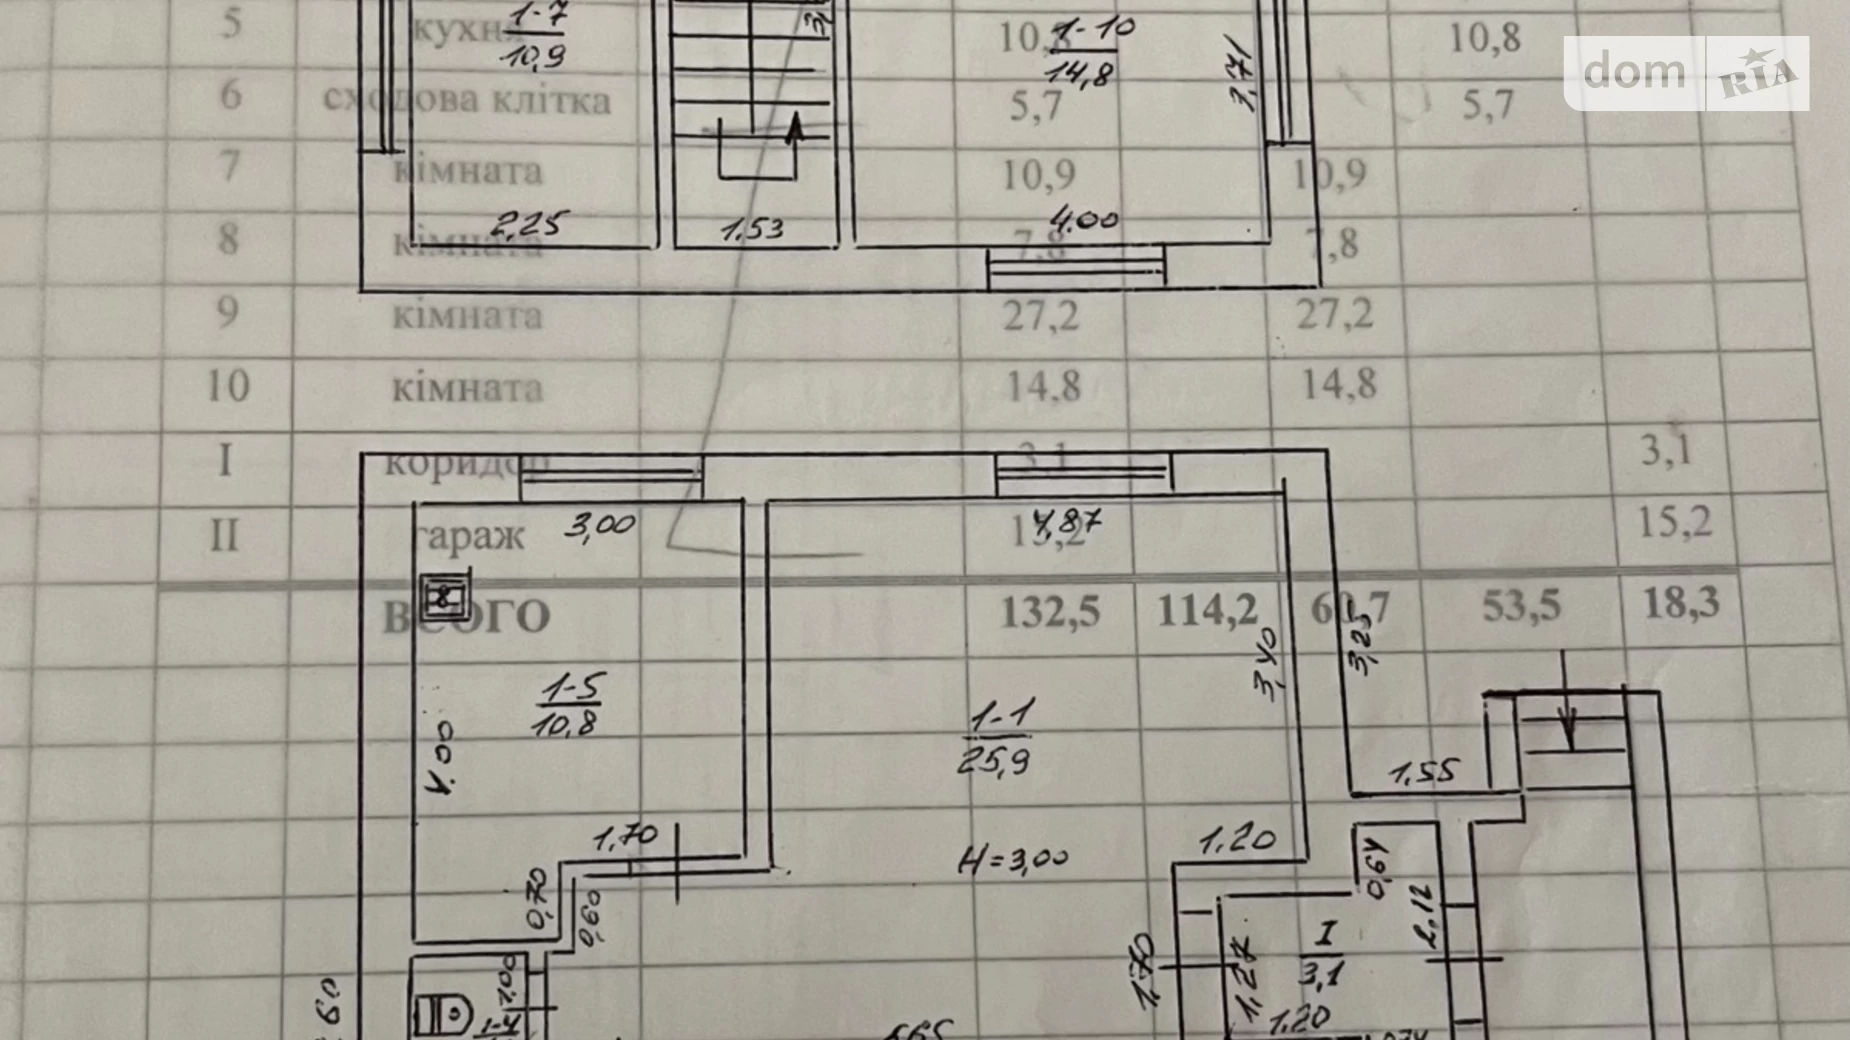 5 кухня 10,8 10,8
1-7
10,9
1-10
14,8
3,71
dom RIA
6 сходова клітка 5,7 5,7
7 кімната 10,9 10,9
2,25
1.53
4.00
8 кімната 7,8 7,8
9 кімната 27,2 27,2
10 кімната 14,8 14,8
I коридор 3,1 3,1
II гараж 15,2 15,2
3,00
4,87
ВСЬОГО 132,5 114,2 60,7 53,5 18,3
3,40
3,25
1-5
10.8
4.00
1-1
25,9
1.55
1,70
H=3,00
1.20
0,64
0,70
0,60
2.12
1.70
1,27
I
3,1
1.20
60
1-4
665